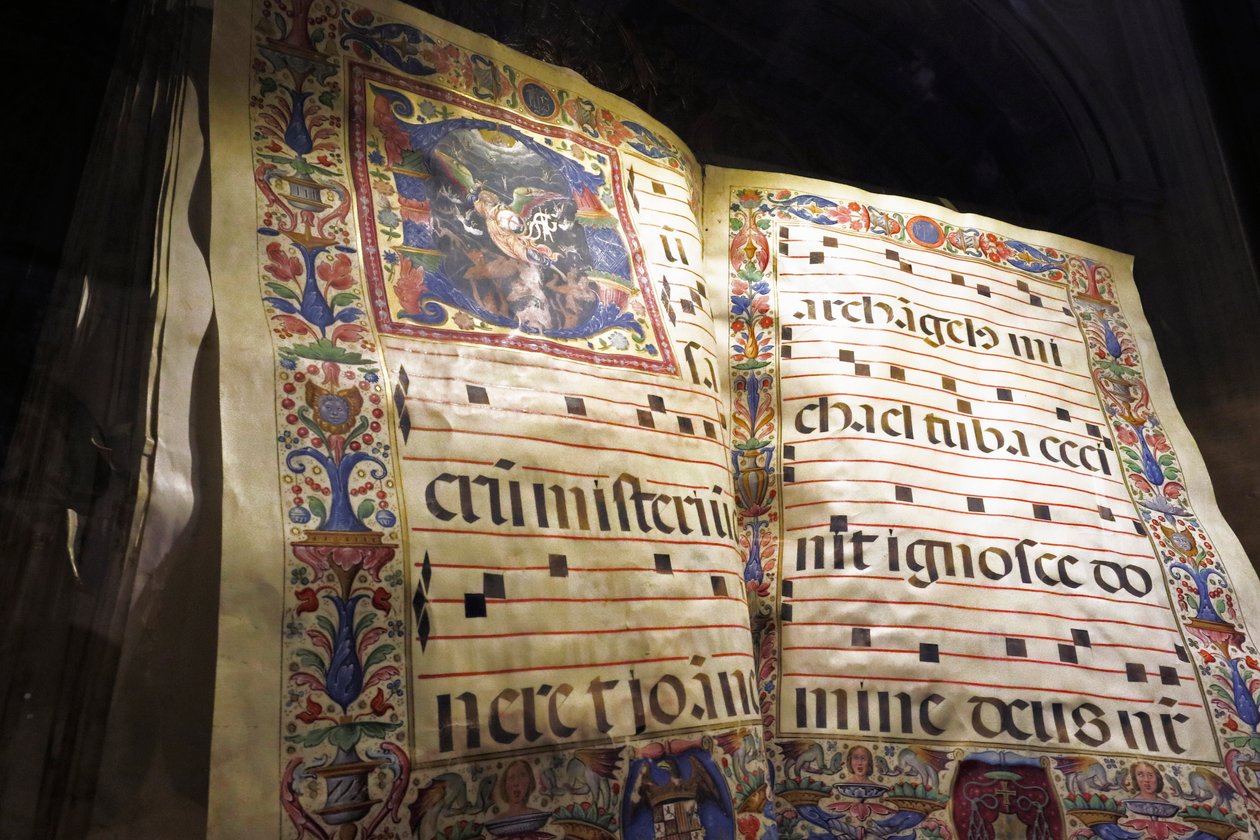 ū
sa
crū misteriū
neret joāne
archāgelꝰ mi
chael tuba ceci
nit ignosce do
mine deus nr̄